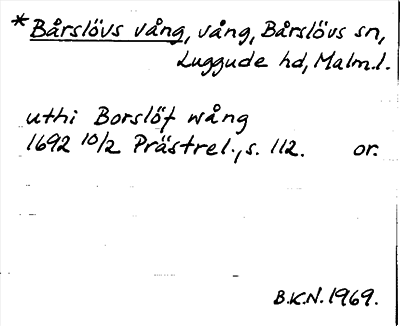 * Bårslövs vång, vång, Bårslövs sn,
Luggude hd, Malm.l.
uthi Borslöf wång
1692 10/2 Prästrel., s. 112. or.
B.K.N. 1969.